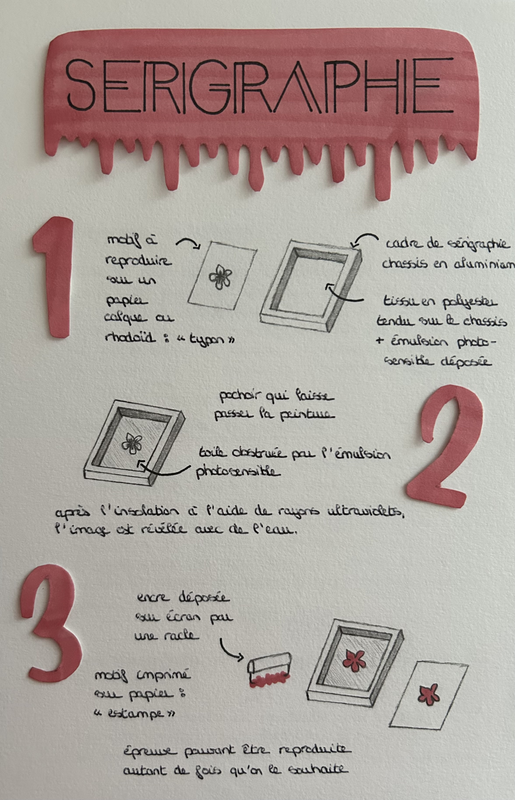 SERIGRAPHIE
1
motif à
reproduire
sur un
papier
calque ou
rhodoïd : « typon »
cadre de sérigraphie
chassis en aluminium
tissu en polyester
tendu sur le chassis
+ émulsion photo-
sensible déposée
2
pochoir qui laisse
passer la peinture
toile obstruée par l'émulsion
photosensible
après l'insolation à l'aide de rayons ultraviolets,
l'image est révélée avec de l'eau.
3
encre déposée
sur écran par
une racle
motif imprimé
sur papier :
« estampe »
épreuve pouvant être reproduite
autant de fois qu'on le souhaite